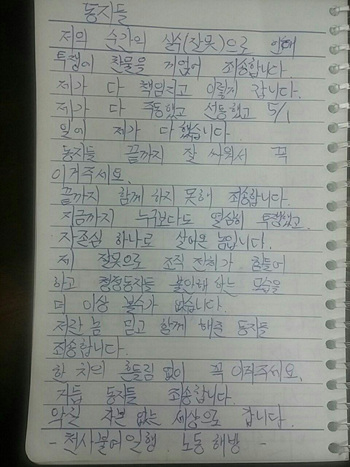 동지들
저의 순간의 실수(잘못)으로 인해
투쟁이 찬물을 끼얹어 죄송합니다
제가 다 책임지고 이렇게 갑니다.
제가 다 주동했고 선동했고 5/1
일이 제가 다 했습니다.
동지들 끝까지 잘 싸워서 꼭
이겨주세요.
끝까지 함께 하지 못해 죄송합니다.
지금까지 누구보다도 열심히 투쟁했고
자존심 하나로 살아온 놈입니다.
저 잘못으로 조직 전체가 힘들어
하고 조합동지들 불안해 하는 모습을
더 이상 볼수가 없습니다
저란 놈 믿고 함께 해준 동지들
죄송합니다.
한 치의 흔들림 없이 꼭 이겨주세요.
지동 동지들 죄송합니다.
악질 자본 없는 세상으로 갑니다.
- 천사불여일행. 노동 해방 -